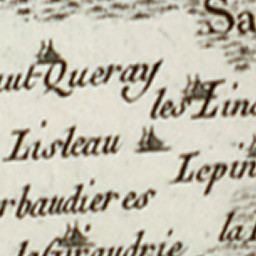 Sa
aut-Queray
les Lina
Lisleau
Lepin
rbaudieres
la
la Giraudrie